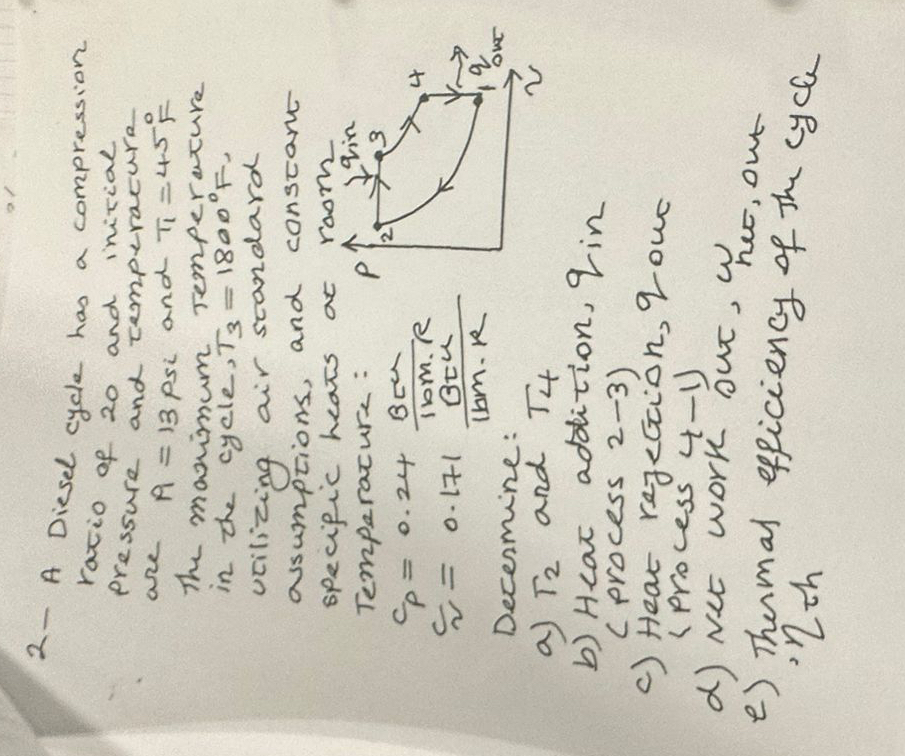 2- A Diesel cycle has a compression
ratio of 20 and initial
pressure and temperature
are P1 = 13 psi and T1 = 45°F
The maximum temperature
in the cycle, T3 = 1800°F,
utilizing air standard
assumptions, and constant
specific heats at room
Temperature:
Cp = 0.24 Btu/lbm.R
Cv = 0.171 Btu/lbm.R
P
2
3
qin
4
1
qout
v
Determine:
a) T2 and T4
b) Heat addition, qin
(process 2-3)
c) Heat rejection, qout
(process 4-1)
d) Net work out, w net, out
e) Thermal efficiency of the cycle
, ηth